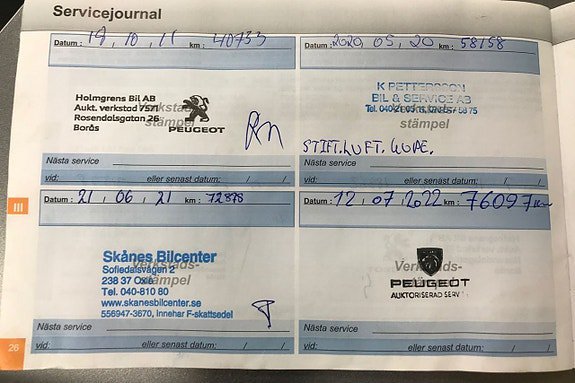 Servicejournal
Datum: 19, 10, 11 km: 40733
Holmgrens Bil AB
Aukt. verkstad 7571
Rosendalsgatan 26
Borås
PEUGEOT
Verkstads-
stämpel
Nästa service
vid: / eller senast datum: / /
Datum: 2020, 05, 20 km: 58158
K PETTERSSON
BIL & SERVICE AB
Verkstads-
stämpel
STIFT. LUFT.
Nästa service
vid: / eller senast datum: / /
III
Datum: 21, 06, 21 km: 72878
Skånes Bilcenter
Verkstads-
Sofiedalsvägen 2
stämpel
238 37 Oxie
Tel. 040-810 80
www.skanesbilcenter.se
556947-3670, Innehar F-skattsedel
Nästa service
vid: eller senast datum: / /
Datum: 12, 07, 2022 km: 76097 km
Verkstads-
PEUGEOT
stämpel
AUKTORISERAD SERVI
Nästa service
vid: eller senast datum: / /
26